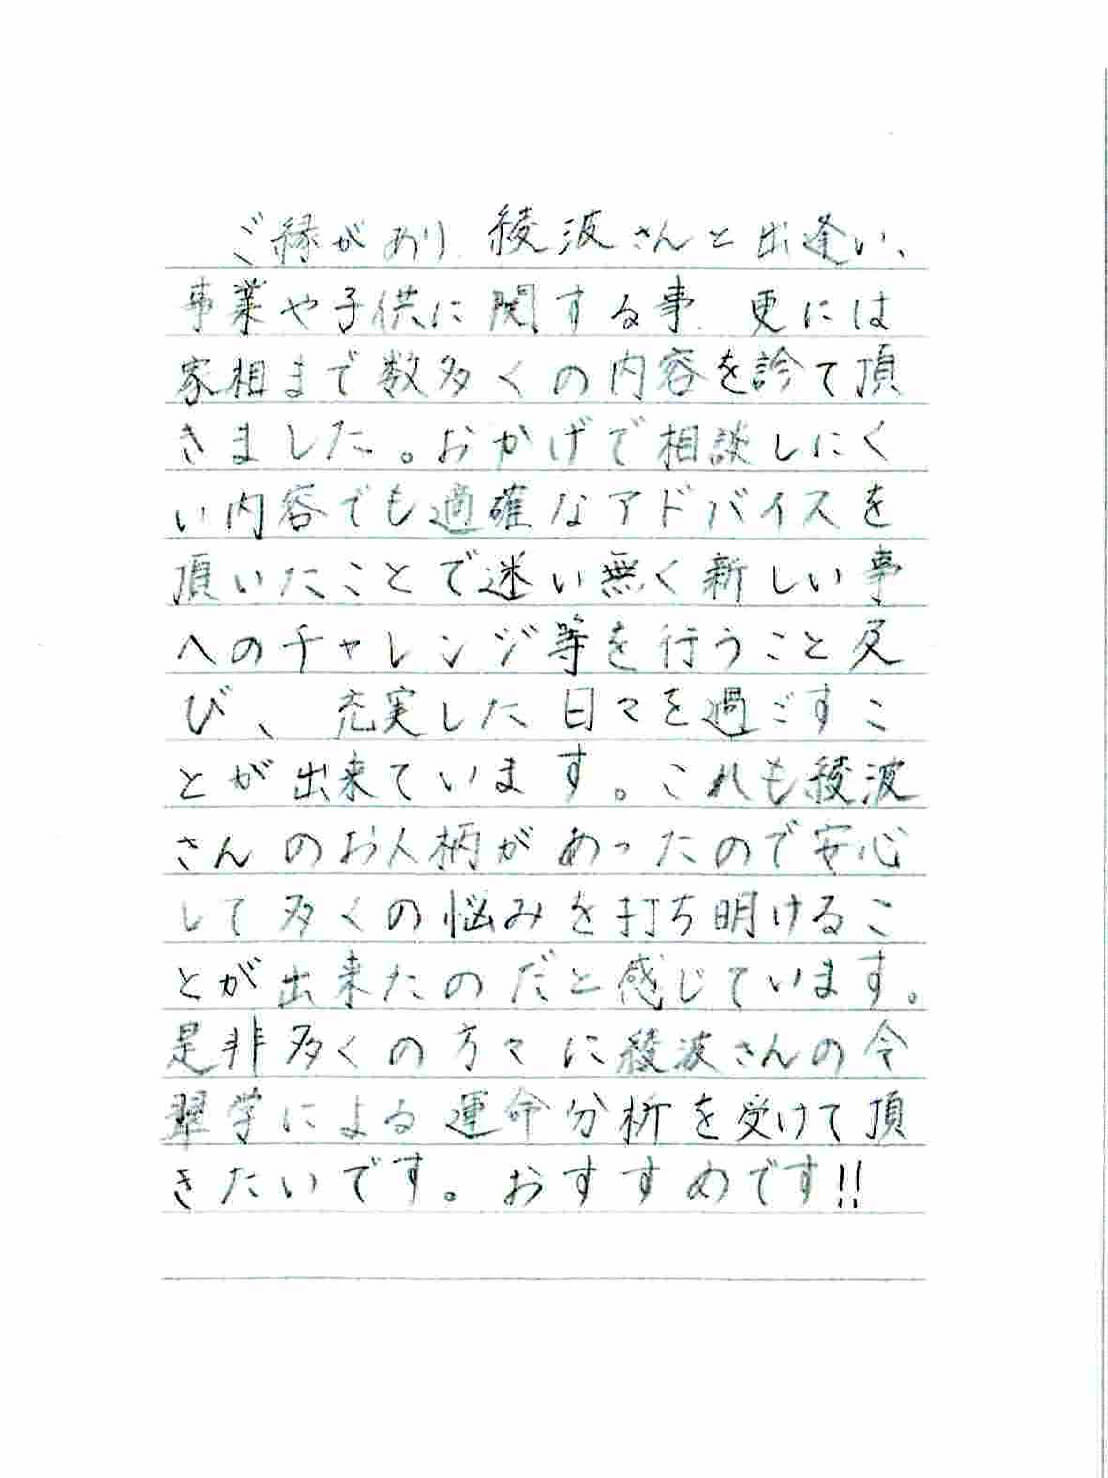 ご縁があり、綾波さんと出逢い、
事業や子供に関する事、更には
家相まで数多くの内容を診て頂
きました。おかげで相談しにく
い内容でも適確なアドバイスを
頂いたことで迷い無く新しい事
へのチャレンジ等を行うこと及
び、充実した日々を過ごすこ
とが出来ています。これも綾波
さんのお人柄があったので安心
して多くの悩みを打ち明けるこ
とが出来たのだと感じています。
是非多くの方々に綾波さんの令
翠学による運命分析を受けて頂
きたいです。おすすめです!!